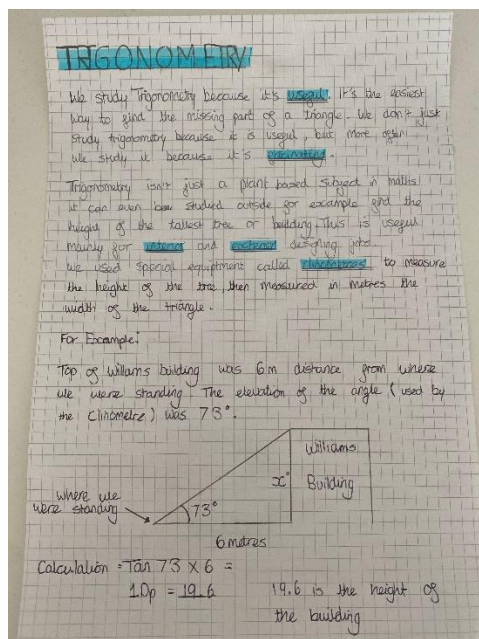 TRIGONOMETRY
We study Trigonometry because it's useful. It's the easiest
way to find the missing part of a triangle. We don't just
study trigonometry because it is useful, but more often
we study it because it's fascinating.
Trigonometry isn't just a plant based subject in maths
it can even be studied outside for example find the
height of the tallest tree or building. This is useful
mainly for interior and exterior designing jobs.
We used special equipment called clinometres to measure
the height of the tree, then measured in metres the
width of the triangle.
For Example:
Top of Willams building was 6m distance from where
we were standing. The elevation of the angle (used by
the Clinometre) was 73°.
Williams
x°
Building
where we
were standing
73°
6 metres
Calculation = Tan 73 x 6 =
1.Dp = 19.6
19.6 is the height of
the building